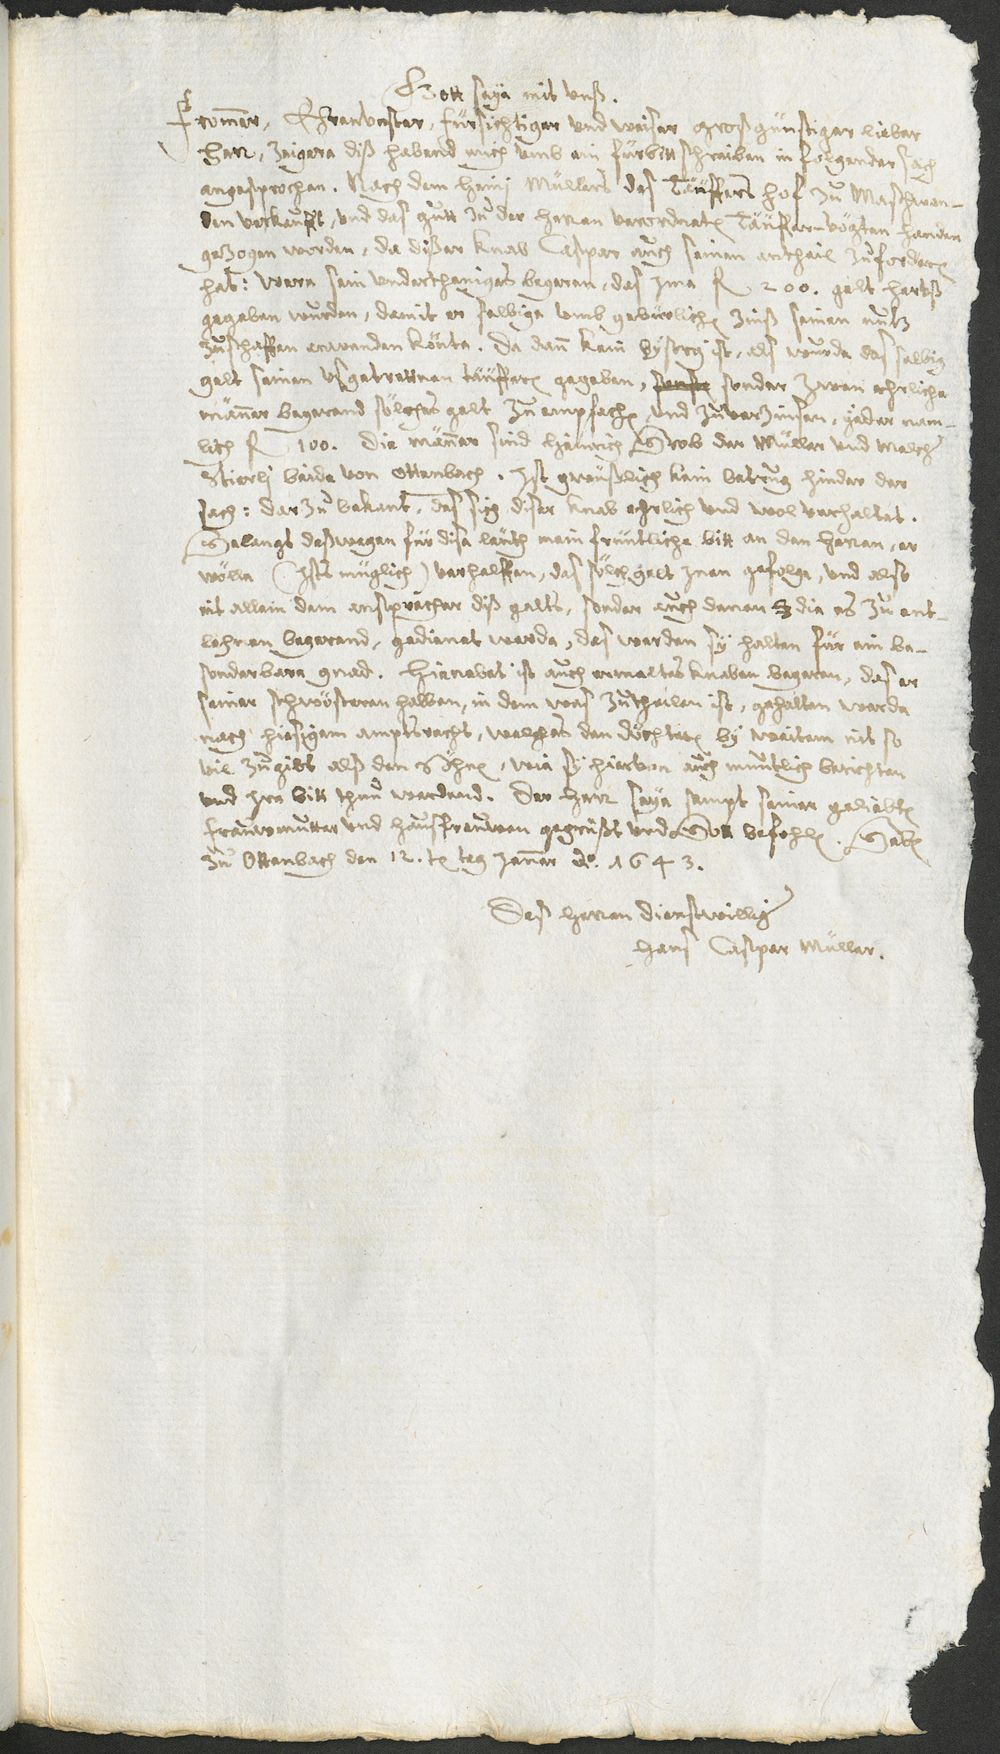 Gott seye mit unß.
Frommer, Ehrenvester, fürsichtiger und weiser großgünstiger lieber
Herr, Zeigere diß habend mich umb ein fürbittschreiben in folgender sach
angesprochen. Nach dem Heinj Müllers des Täuffers hof zu Maschwan-
den verkaufft, und das gutt zu der Herren verordneten Täuffer-vögten handen
gezogen worden, da diser knab Caspar auch seinen antheil zufordern
hat: Were sein underthäniges begeren, das jme fl 200. gelt harus
gegeben wurden, damit er selbige umb gebürlichen Zinß seinen nutz
zuschaffen anwenden könte. Da dañ kein bysorg ist, als wurde das selbig
gelt seinen ußgetrettnen täuffern gegeben, sonder zween ehrliche
männer begerend sölches gelt zu empfachen und zuverzinsen, yeder nam-
lich fl 100. Die männer sind Heinrich Grob der Müller und Melcher
Stierlj beide von Ottenbach. Ist gwüßlich kein betrug hinder der
sach: darzu bekant, das sich diser knab ehrlich und wol verhaltet.
Gelangt deßwegen für dise leüth mein früntliche bitt an den Herren, er
wölle (Ists müglich) verhelffen, das sölch gelt jnen gefolge, und also
nit allein dem ansprächer diß gelts, sonder auch denen die es zu ent-
lehnen begerend, gedienet werde, das werden sy halten für ein be-
sonderbare gnad. Hienebet ist auch ermeltes knaben begeren, das er
seiner schwösteren halben, in dem was zutheilen ist, gehalten werde
nach hiesigem amptsrecht, welches den döchteren by weitem nit so
vil zugibt alß den Söhnen, wie sy hiervon auch muntlich berichten
und jre bitt thun werdend. Der Herr seye sampt seiner geliebten
frauwmutter und hausfrauwen gegrüßt und Gott befohlen. Geben
zu Ottenbach den 12.ten tag Jenner Ao. 1643.
Des Herren dienstwillig
Hans Caspar Müller.